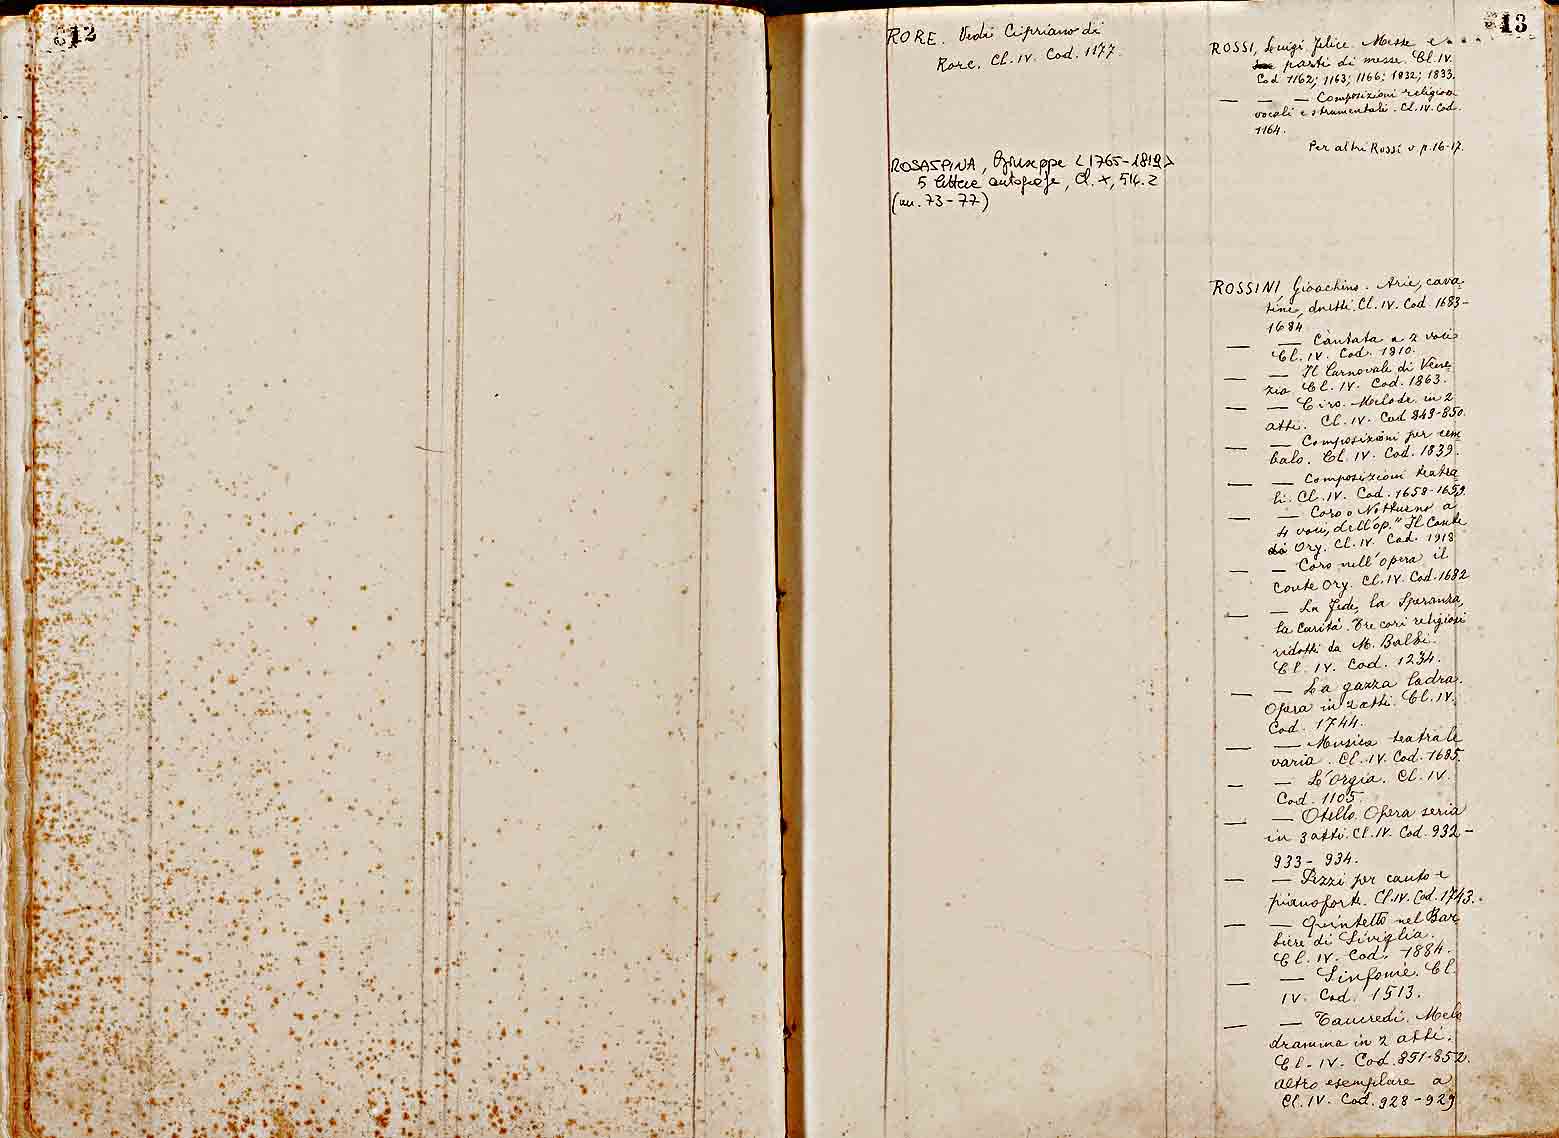 12
13
RORE. Vedi Cipriano di
Rore. Cl. IV. Cod. 1177.
ROSASPINA, Giuseppe <1765-1819>
5 lettere autografe, Cl. X, 514.2
(nn. 73-77)
ROSSI, Luigi Felice. Messe e
parti di messe. Cl. IV.
Cod 1162; 1163; 1166; 1832; 1833.
— — — Composizioni religiose
vocali e strumentali. Cl. IV. Cod.
1164.
Per altri Rossi v. p. 16-17.
ROSSINI, Gioachino. Arie, cava-
tine, duetti. Cl. IV. Cod. 1683-
1684
— — Cantata a 2 voci
Cl. IV. Cod. 1910.
— — Il Carnovale di Vene-
zia Cl. IV. Cod. 1863.
— — Ciro. Melodr. in 2
atti. Cl. IV. Cod 849-850.
— — Composizioni per cem-
balo. Cl. IV. Cod. 1839.
— — Composizioni teatra-
li. Cl. IV. Cod. 1658-1659.
— — Coro o Notturno a
4 voci, dell'op." Il Conte
di Ory. Cl. IV. Cod. 1918
— — Coro nell'opera il
Conte Ory. Cl. IV. Cod. 1682
— — La Fede, la Speranza,
la Carità. Tre cori religiosi
ridotti da M. Balbi.
Cl. IV. Cod. 1234.
— — La gazza ladra.
Opera in 2 atti. Cl. IV.
Cod. 1744.
— — Musica teatrale
varia. Cl. IV. Cod. 1685.
— — L'Orgia. Cl. IV.
Cod. 1105.
— — Otello. Opera seria
in 3 atti. Cl. IV. Cod. 932-
933-934.
— — Pezzi per canto e
pianoforte. Cl. IV. Cod. 1743.
— — Quintetto nel Bar-
biere di Siviglia.
Cl. IV. Cod. 1884.
— — Sinfonie. Cl.
IV. Cod. 1513.
— — Tancredi. Melo
dramma in 2 atti.
Cl. IV. Cod. 851-852.
altro esemplare a
Cl. IV. Cod. 928-929